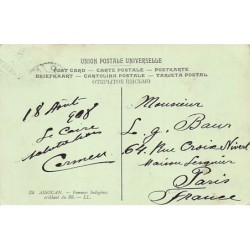 UNION POSTALE UNIVERSELLE
POST CARD – CARTE POSTALE – POSTKARTE
BRIEFKAART – CARTOLINA POSTALE – TARJETA POSTAL
ОТКРЫТОЕ ПИСЬМО
18 Août 908
Le Caire
Salutations
Carmen
Monsieur
L. G. Baur
64, Rue Croix Nivert
Maison
Paris
France
ASSOUAN. – Femmes Indigènes
LL.